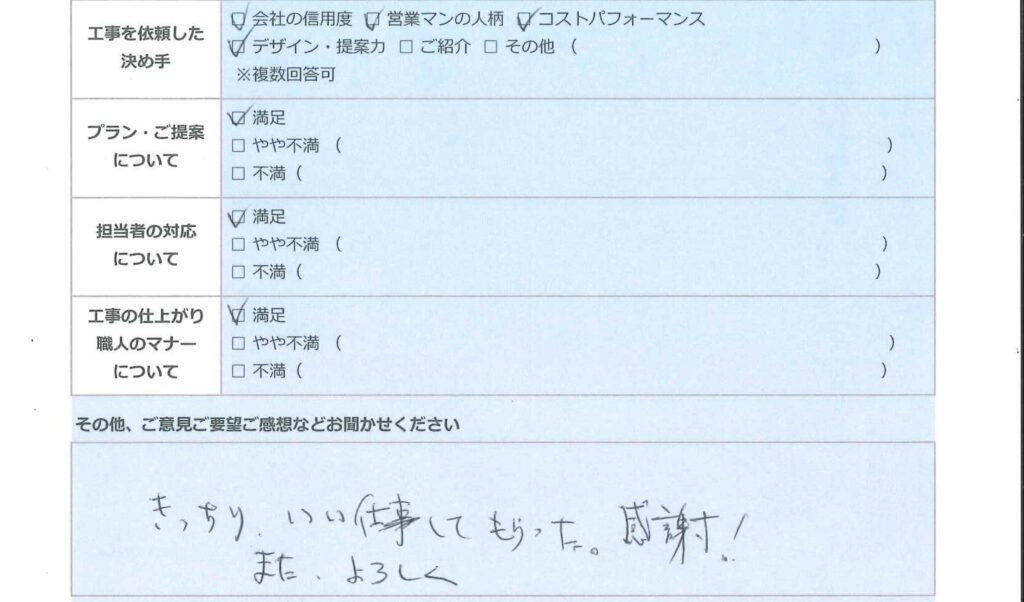 工事を依頼した
決め手
☑ 会社の信用度 ☑ 営業マンの人柄 ☑ コストパフォーマンス
☑ デザイン・提案力 □ ご紹介 □ その他 ( )
※複数回答可
プラン・ご提案
について
☑ 満足
□ やや不満 ( )
□ 不満 ( )
担当者の対応
について
☑ 満足
□ やや不満 ( )
□ 不満 ( )
工事の仕上がり
職人のマナー
について
☑ 満足
□ やや不満 ( )
□ 不満 ( )
その他、ご意見ご要望ご感想などお聞かせください
きっちり、いい仕事してもらった。感謝!
また、よろしく